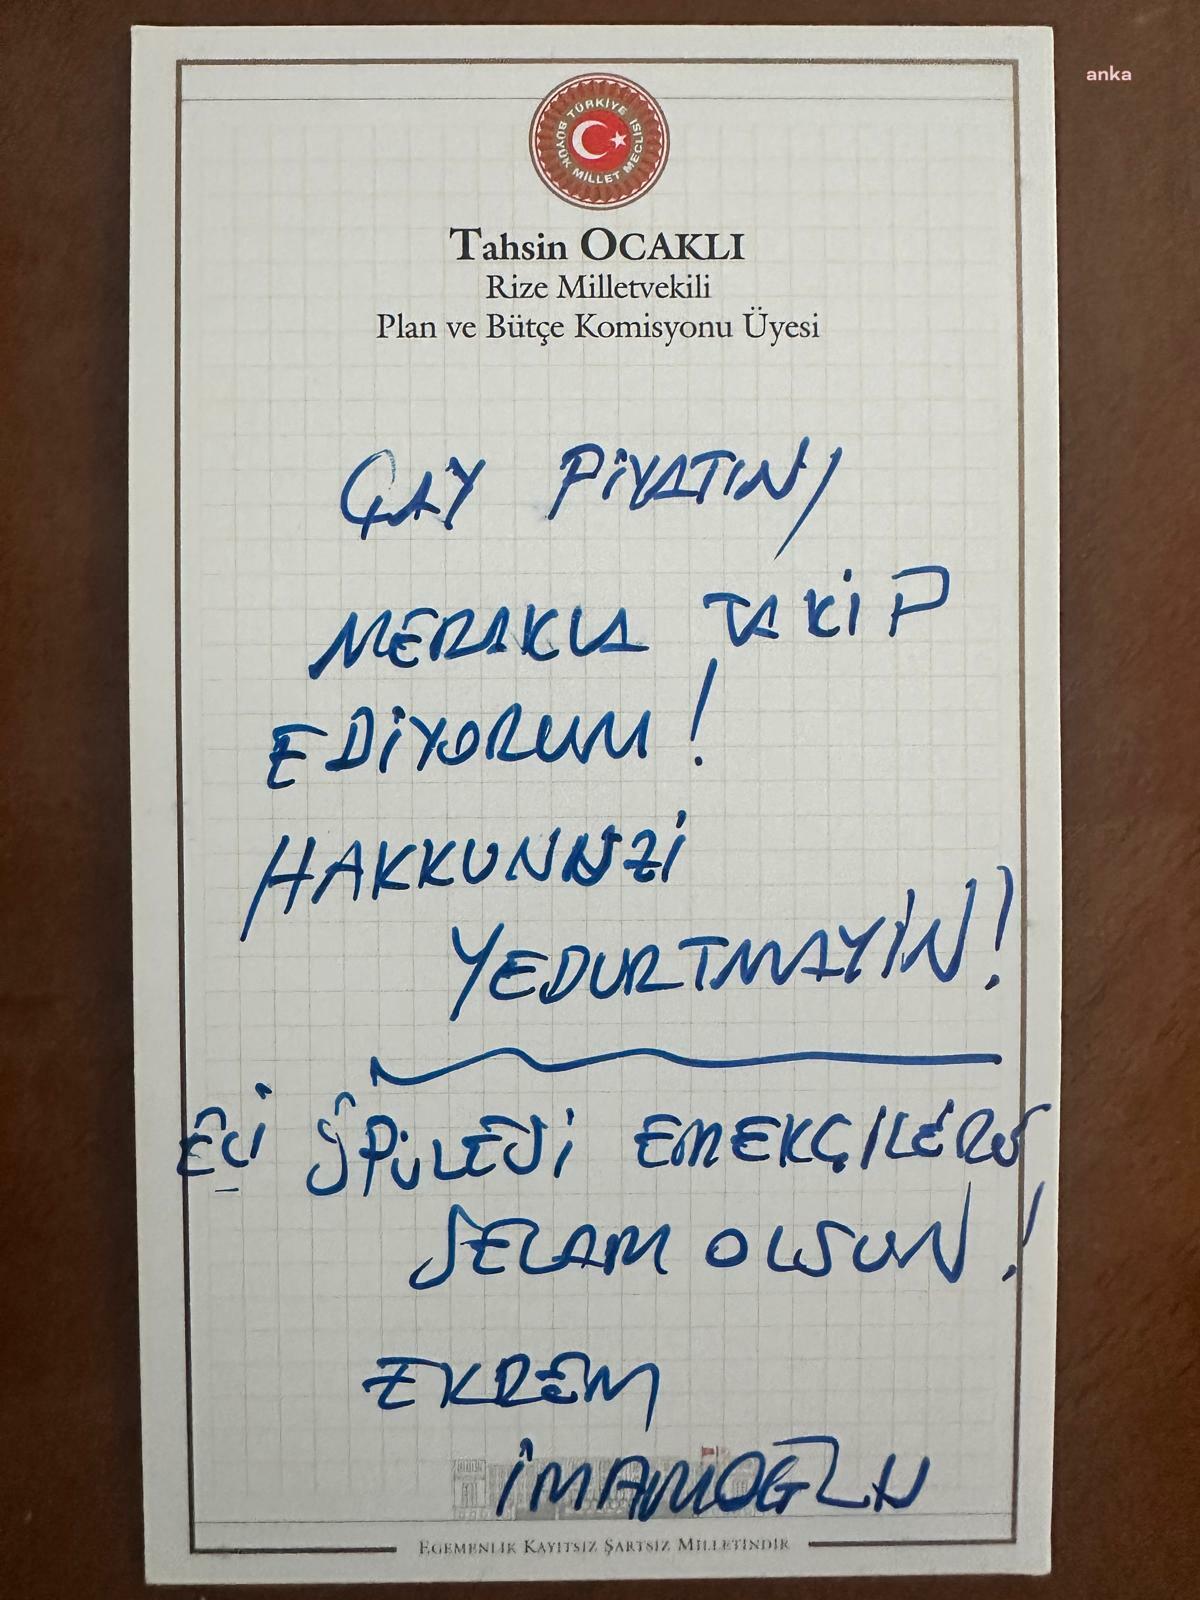 anka
TÜRKİYE BÜYÜK MİLLET MECLİSİ
Tahsin OCAKLI
Rize Milletvekili
Plan ve Bütçe Komisyonu Üyesi
ÇAY FİYATINI
MERAKLA TAKİP
EDİYORUM!
HAKKUNUZİ
YEDURTMAYİN!
ELİ ÖPÜLESİ EMEKÇİLERE
SELAM OLSUN!
EKREM
İMAMOĞLU
EGEMENLİK KAYITSIZ ŞARTSIZ MİLLETİNDİR